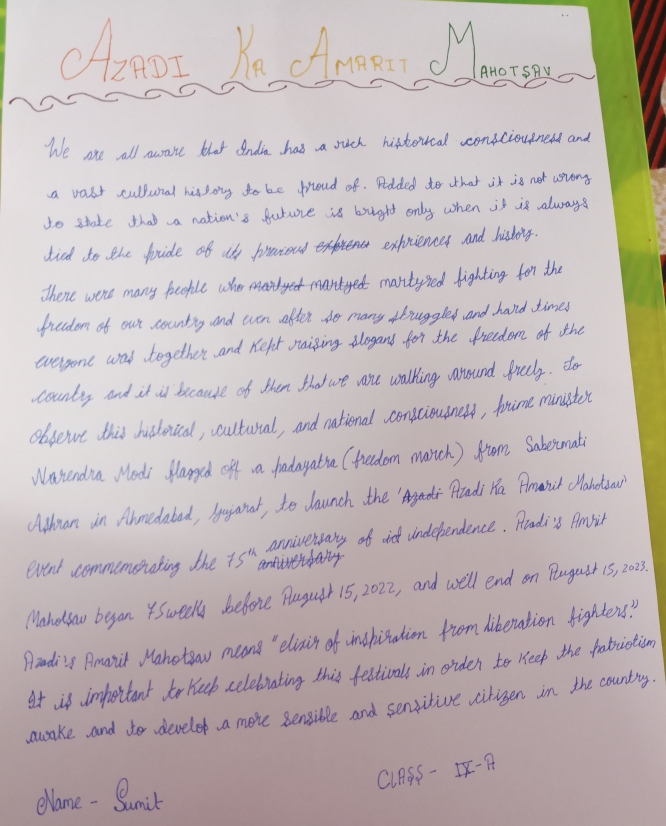 AZADI KA AMARIT MAHOTSAV
We are all aware that India has a rich historical consciousness and
a vast cultural history to be proud of. Added to that it is not wrong
to state that a nation's future is bright only when it is always
tied to the pride of its previous expriences and history.
There were many people who martyed martyed martyred fighting for the
freedom of our country and even after so many struggles and hard times
everyone was together and kept raising slogans for the freedom of the
country and it is because of them that we are walking around freely. To
observe this historical, cultural, and national consciousness, prime minister
Narendra Modi flagged off a padayatra (freedom march) from Sabermati
Ashram in Ahmedabad, Gujarat, to launch the 'Azadi Azadi Ka Amarit Mahotsav'
event commemorating the 75th anniversary anniversary of independence. Azadi's Amrit
Mahotsav began 75 weeks before August 15, 2022, and we'll end on August 15, 2023.
Azadi's Amarit Mahotsav means "elixir of inspiration from liberation fighters."
It is important to keep celebrating this festivals in order to keep the patriotism
awake and to develop a more sensible and sensitive citizen in the country.
Name - Sumit
CLASS - IX-A